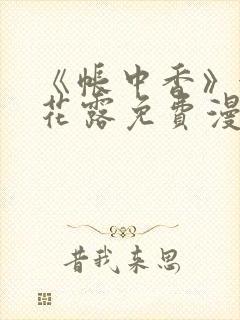 《帐中香》
花露免費漫
昔我来思